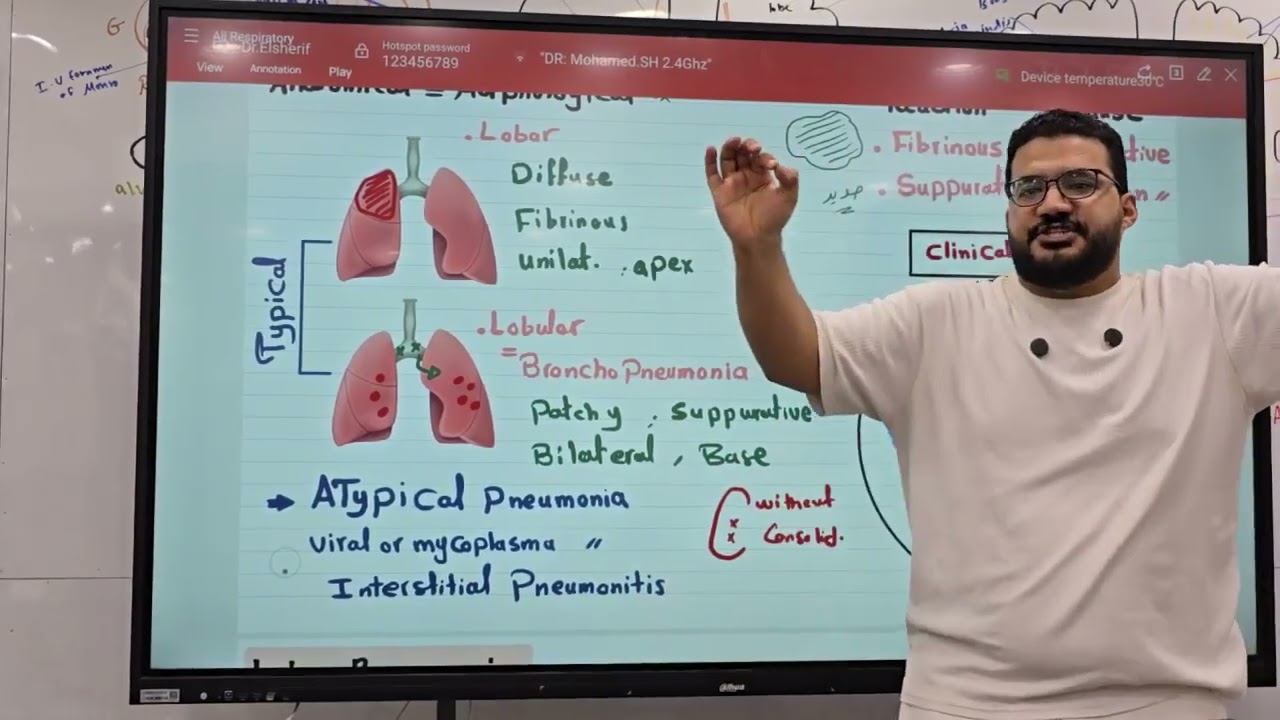 Ali Respiratory
Dr.Elsherif
View
Annotation
Play
Hotspot password
123456789
"DR: Mohamed.SH 2.4Ghz"
Device temperature30°C
.Lobar
Diffuse
Fibrinous
unilat. . apex
. Fibrinous
. Suppurat
جديد
Clinical
Typical
.Lobular
= BronchoPneumonia
Patchy . Suppurative
Bilateral , Base
→ ATypical Pneumonia
viral or mycoplasma "
Interstitial Pneumonitis
without
Consolid.
I.V foramen
of Monro
G
dahua